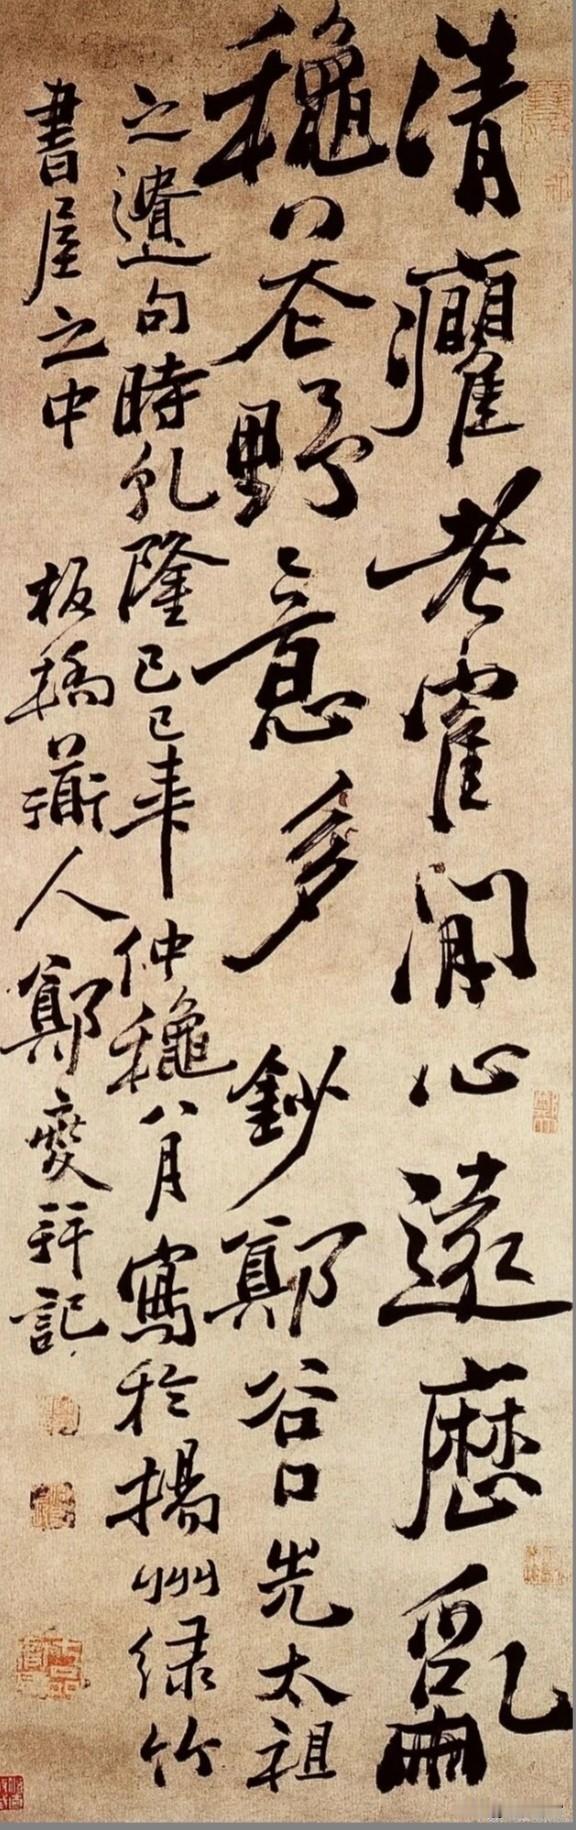 清癯老寉閒心遠歷亂
龝花野意多 鈔鄭谷口先太祖
之遺句時乾隆己巳年仲龝八月寫於揚州绿竹
書屋之中 板橋衜人鄭燮拜記